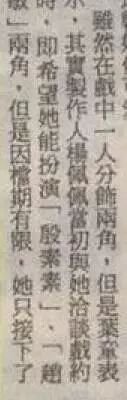 雖然在戲中一人分飾兩角，但是葉童表
示，其實製作人楊佩佩當初與她洽談戲約
時，即希望她能扮演「殷素素」、「趙
敏」兩角，但是因檔期有限，她只接下了